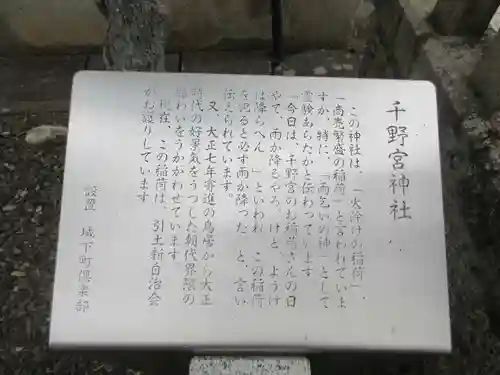 千野宮神社
この神社は、「火除けの稲荷」、
「商売繁盛の稲荷」と言われていま
すが、特に、「雨乞いの神」として
霊験あらたかと伝わっています
「今日は、千野宮のお稲荷さんの日
やて、雨か降るやろ、けと、ようけ
は降らへん」といわれ　この稲荷
を祀ると必す雨か降った　と、言い
伝えられています。
又、大正七年寄進の鳥居から大正
時代の好景気をうつした朝代界隈の
賑わいをうかかわせています
現在、この稲荷は、引土新自治会
かお護りしています
設置　城下町倶楽部